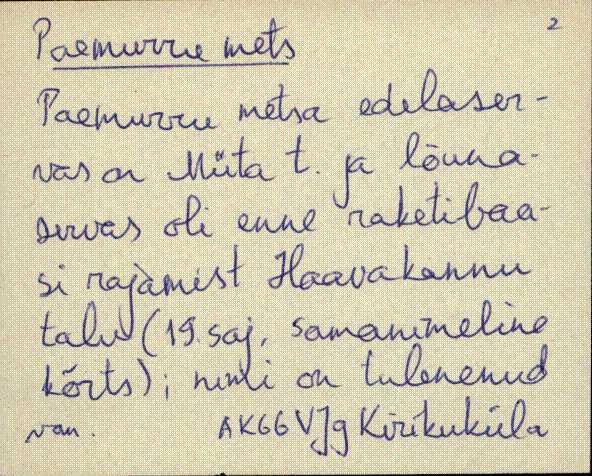 2
Paemurru mets
Paemurru metsa edelaser-
vas on Müta t. ja lõuna-
servas oli enne raketibaa-
si rajamist Haavakannu
talu (19. saj. samanimeline
kõrts); nimi on tulenenud
van. AKGG VJg Kirikuküla